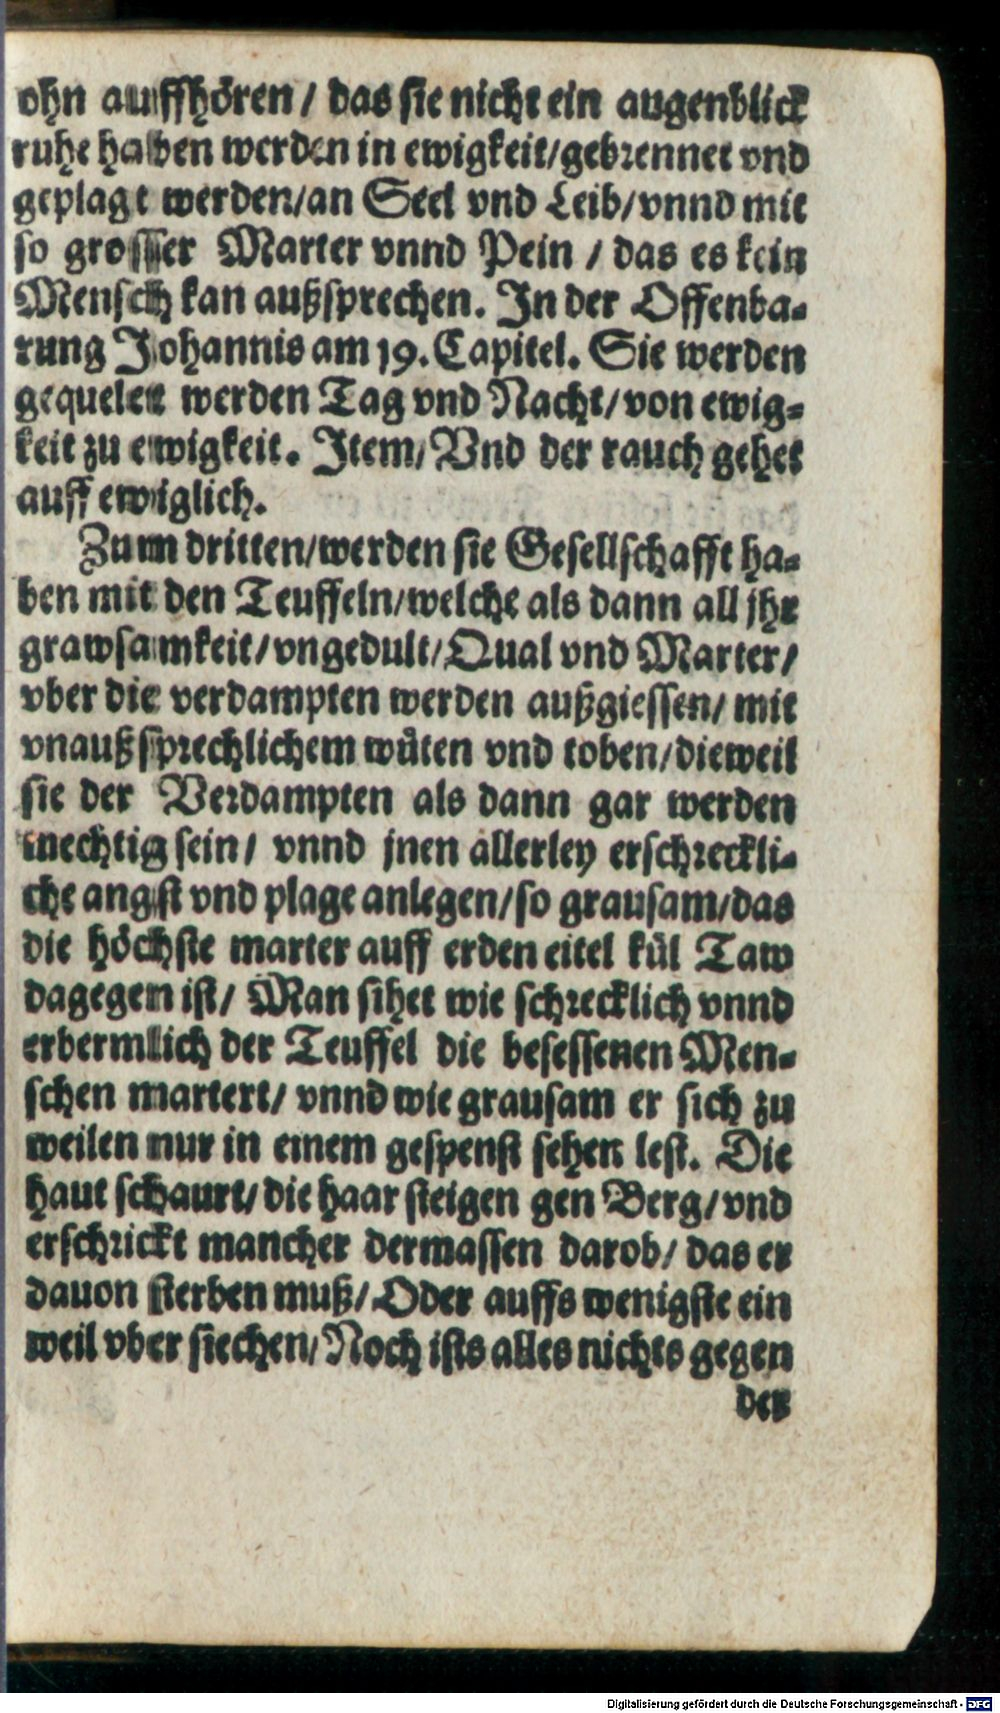 ohn auffhören / das sie nicht ein augenblick
ruhe haben werden in ewigkeit/gebrennet vnd
geplaget werden/an Seel vnd Leib/vnnd mit
so grosser Marter vnnd Pein / das es kein
Mensch kan außsprechen. In der Offenba-
rung Johannis am 19. Capitel. Sie werden
gequelet werden Tag vnd Nacht/von ewig-
keit zu ewigkeit. Item/Vnd der rauch gehet
auff ewiglich.
Zum dritten/werden sie Gesellschafft ha-
ben mit den Teuffeln/welche als dann all jhr
grawsamkeit/vngedult/Qual vnd Marter/
vber die verdampten werden außgiessen/ mit
vnaußsprechlichem wüten vnd toben/dieweil
sie der Verdampten als dann gar werden
mechtig sein/ vnnd jnen allerley erschreckli-
che angst vnd plage anlegen/so grausam/das
die höchste marter auff erden eitel kül Taw
dagegen ist/ Man sihet wie schrecklich vnnd
erbermlich der Teuffel die besessenen Men-
schen martert/ vnnd wie grausam er sich zu
weilen nur in einem gespenst sehen lest. Die
haut schaurt/die haar steigen gen Berg/vnd
erschrickt mancher dermassen darob/ das er
dauon sterben muß/Oder auffs wenigste ein
weil vber siechen/Noch ists alles nichts gegen
der
Digitalisierung gefördert durch die Deutsche Forschungsgemeinschaft - DFG